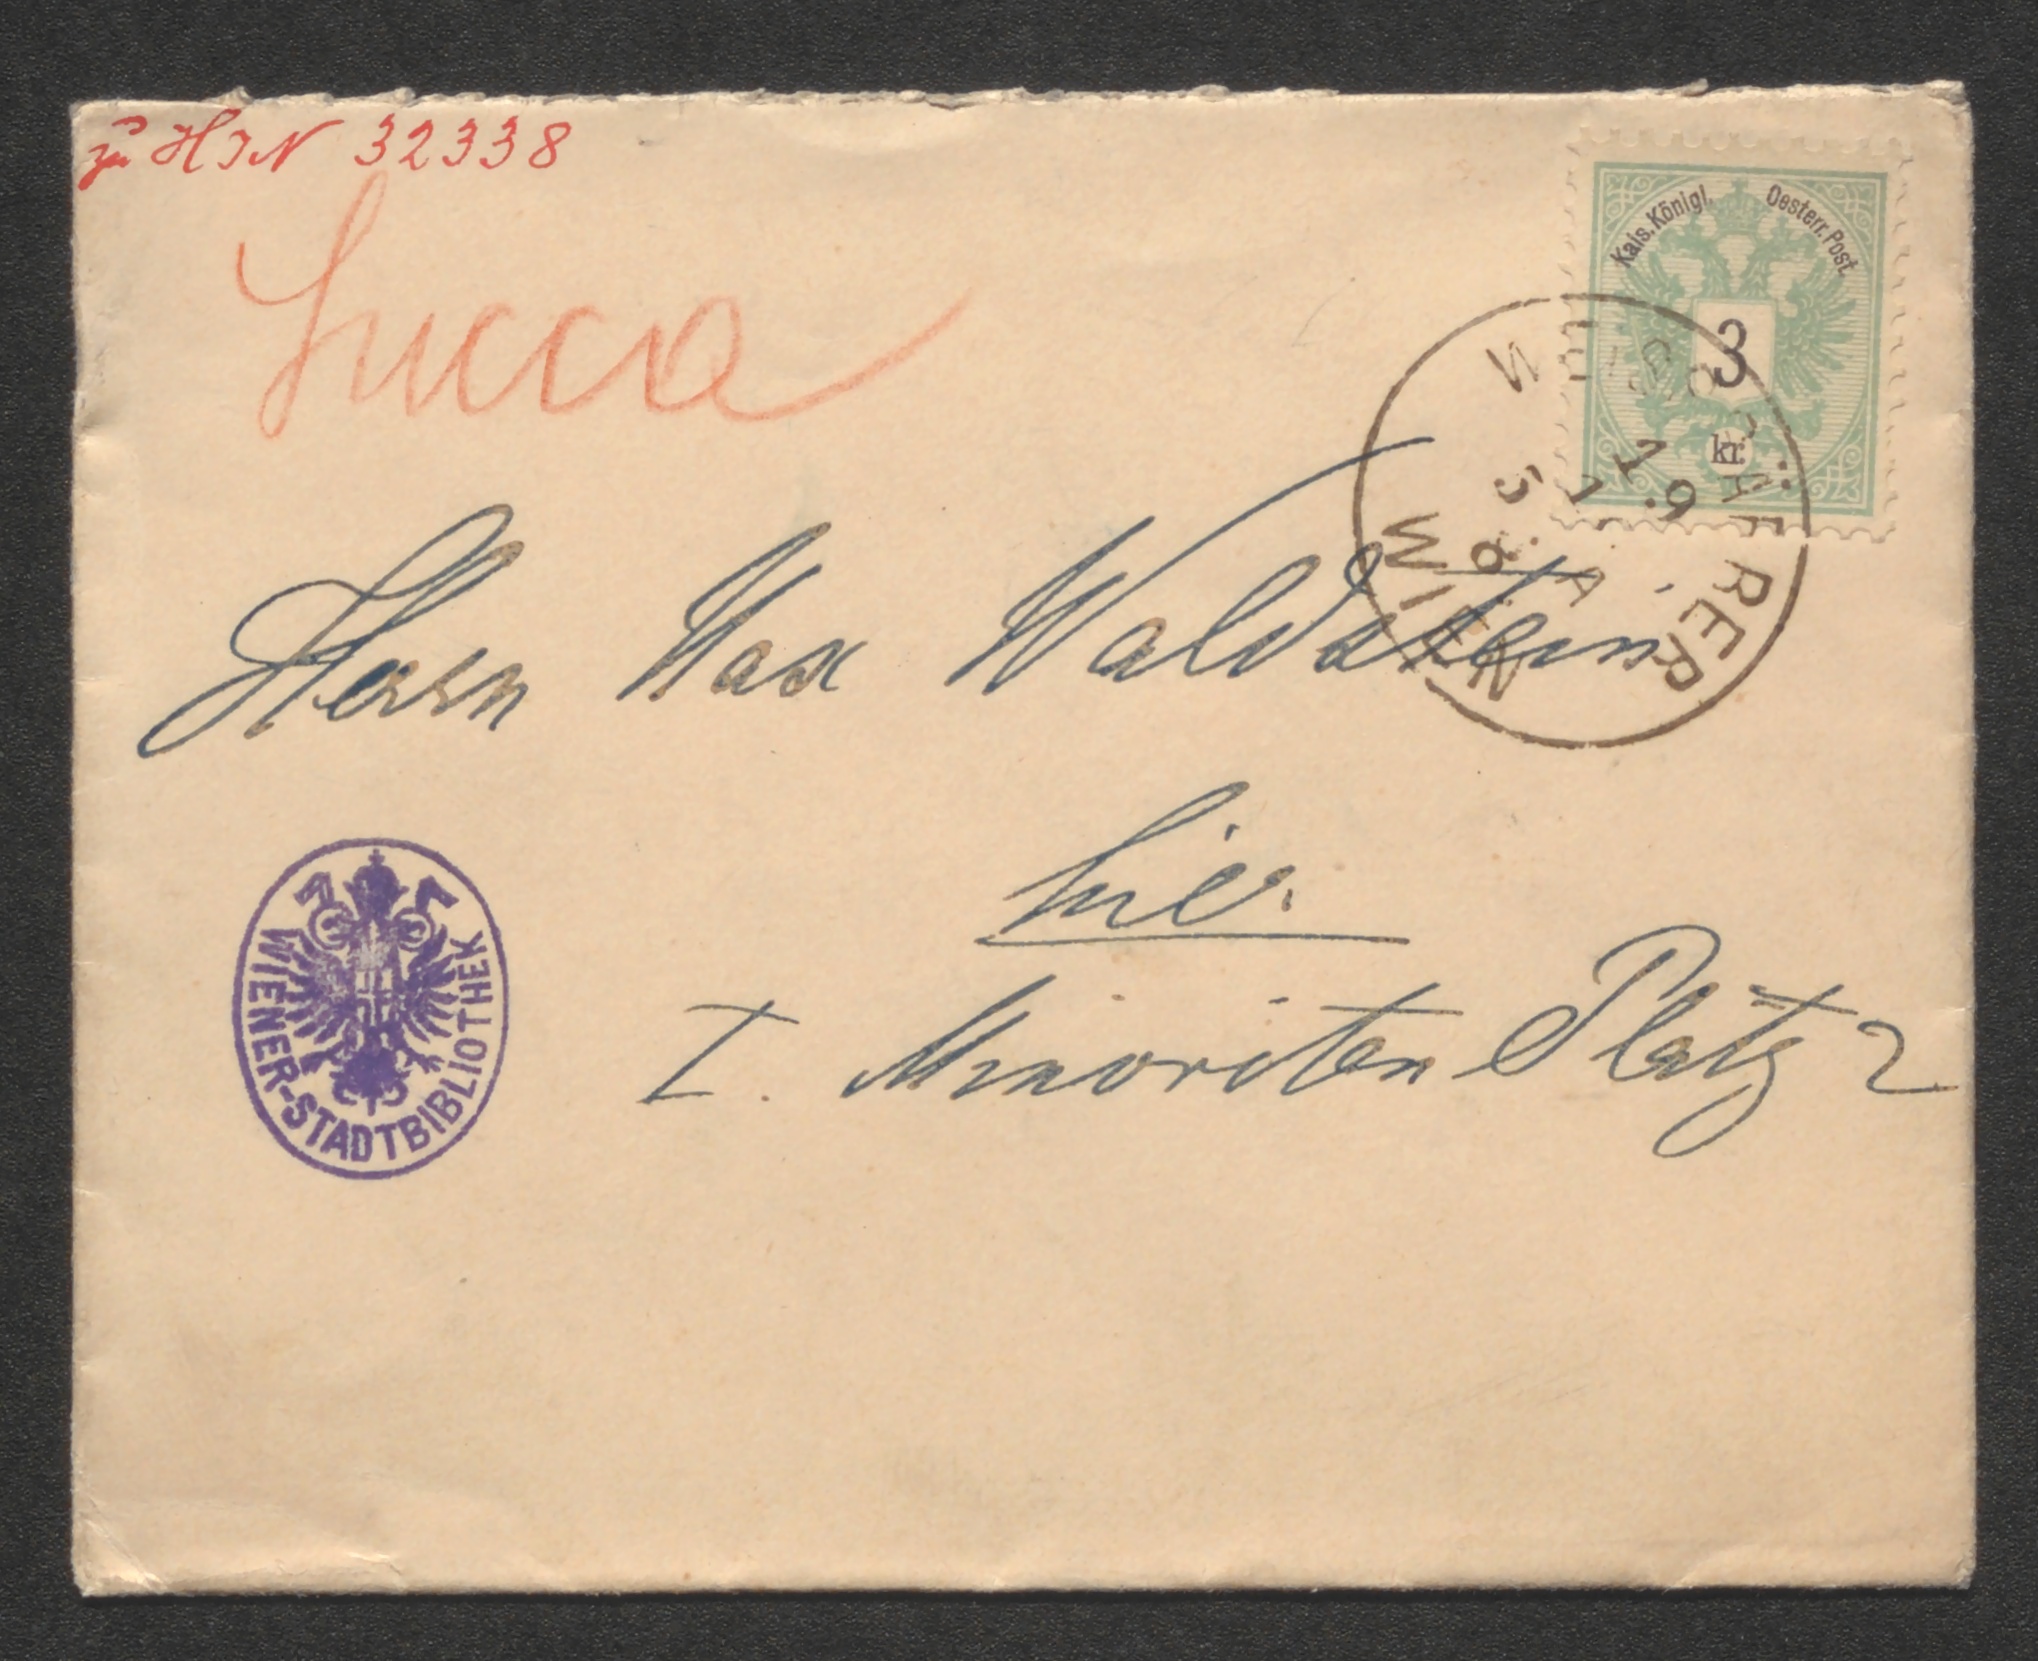 zu HIN 32338
Lucca
Kais. Königl. Oesterr. Post.
3
kr.
WIEN
Herrn Max Waldstein
hier.
I. Minoriten Platz 2
WIENER-STADTBIBLIOTHEK